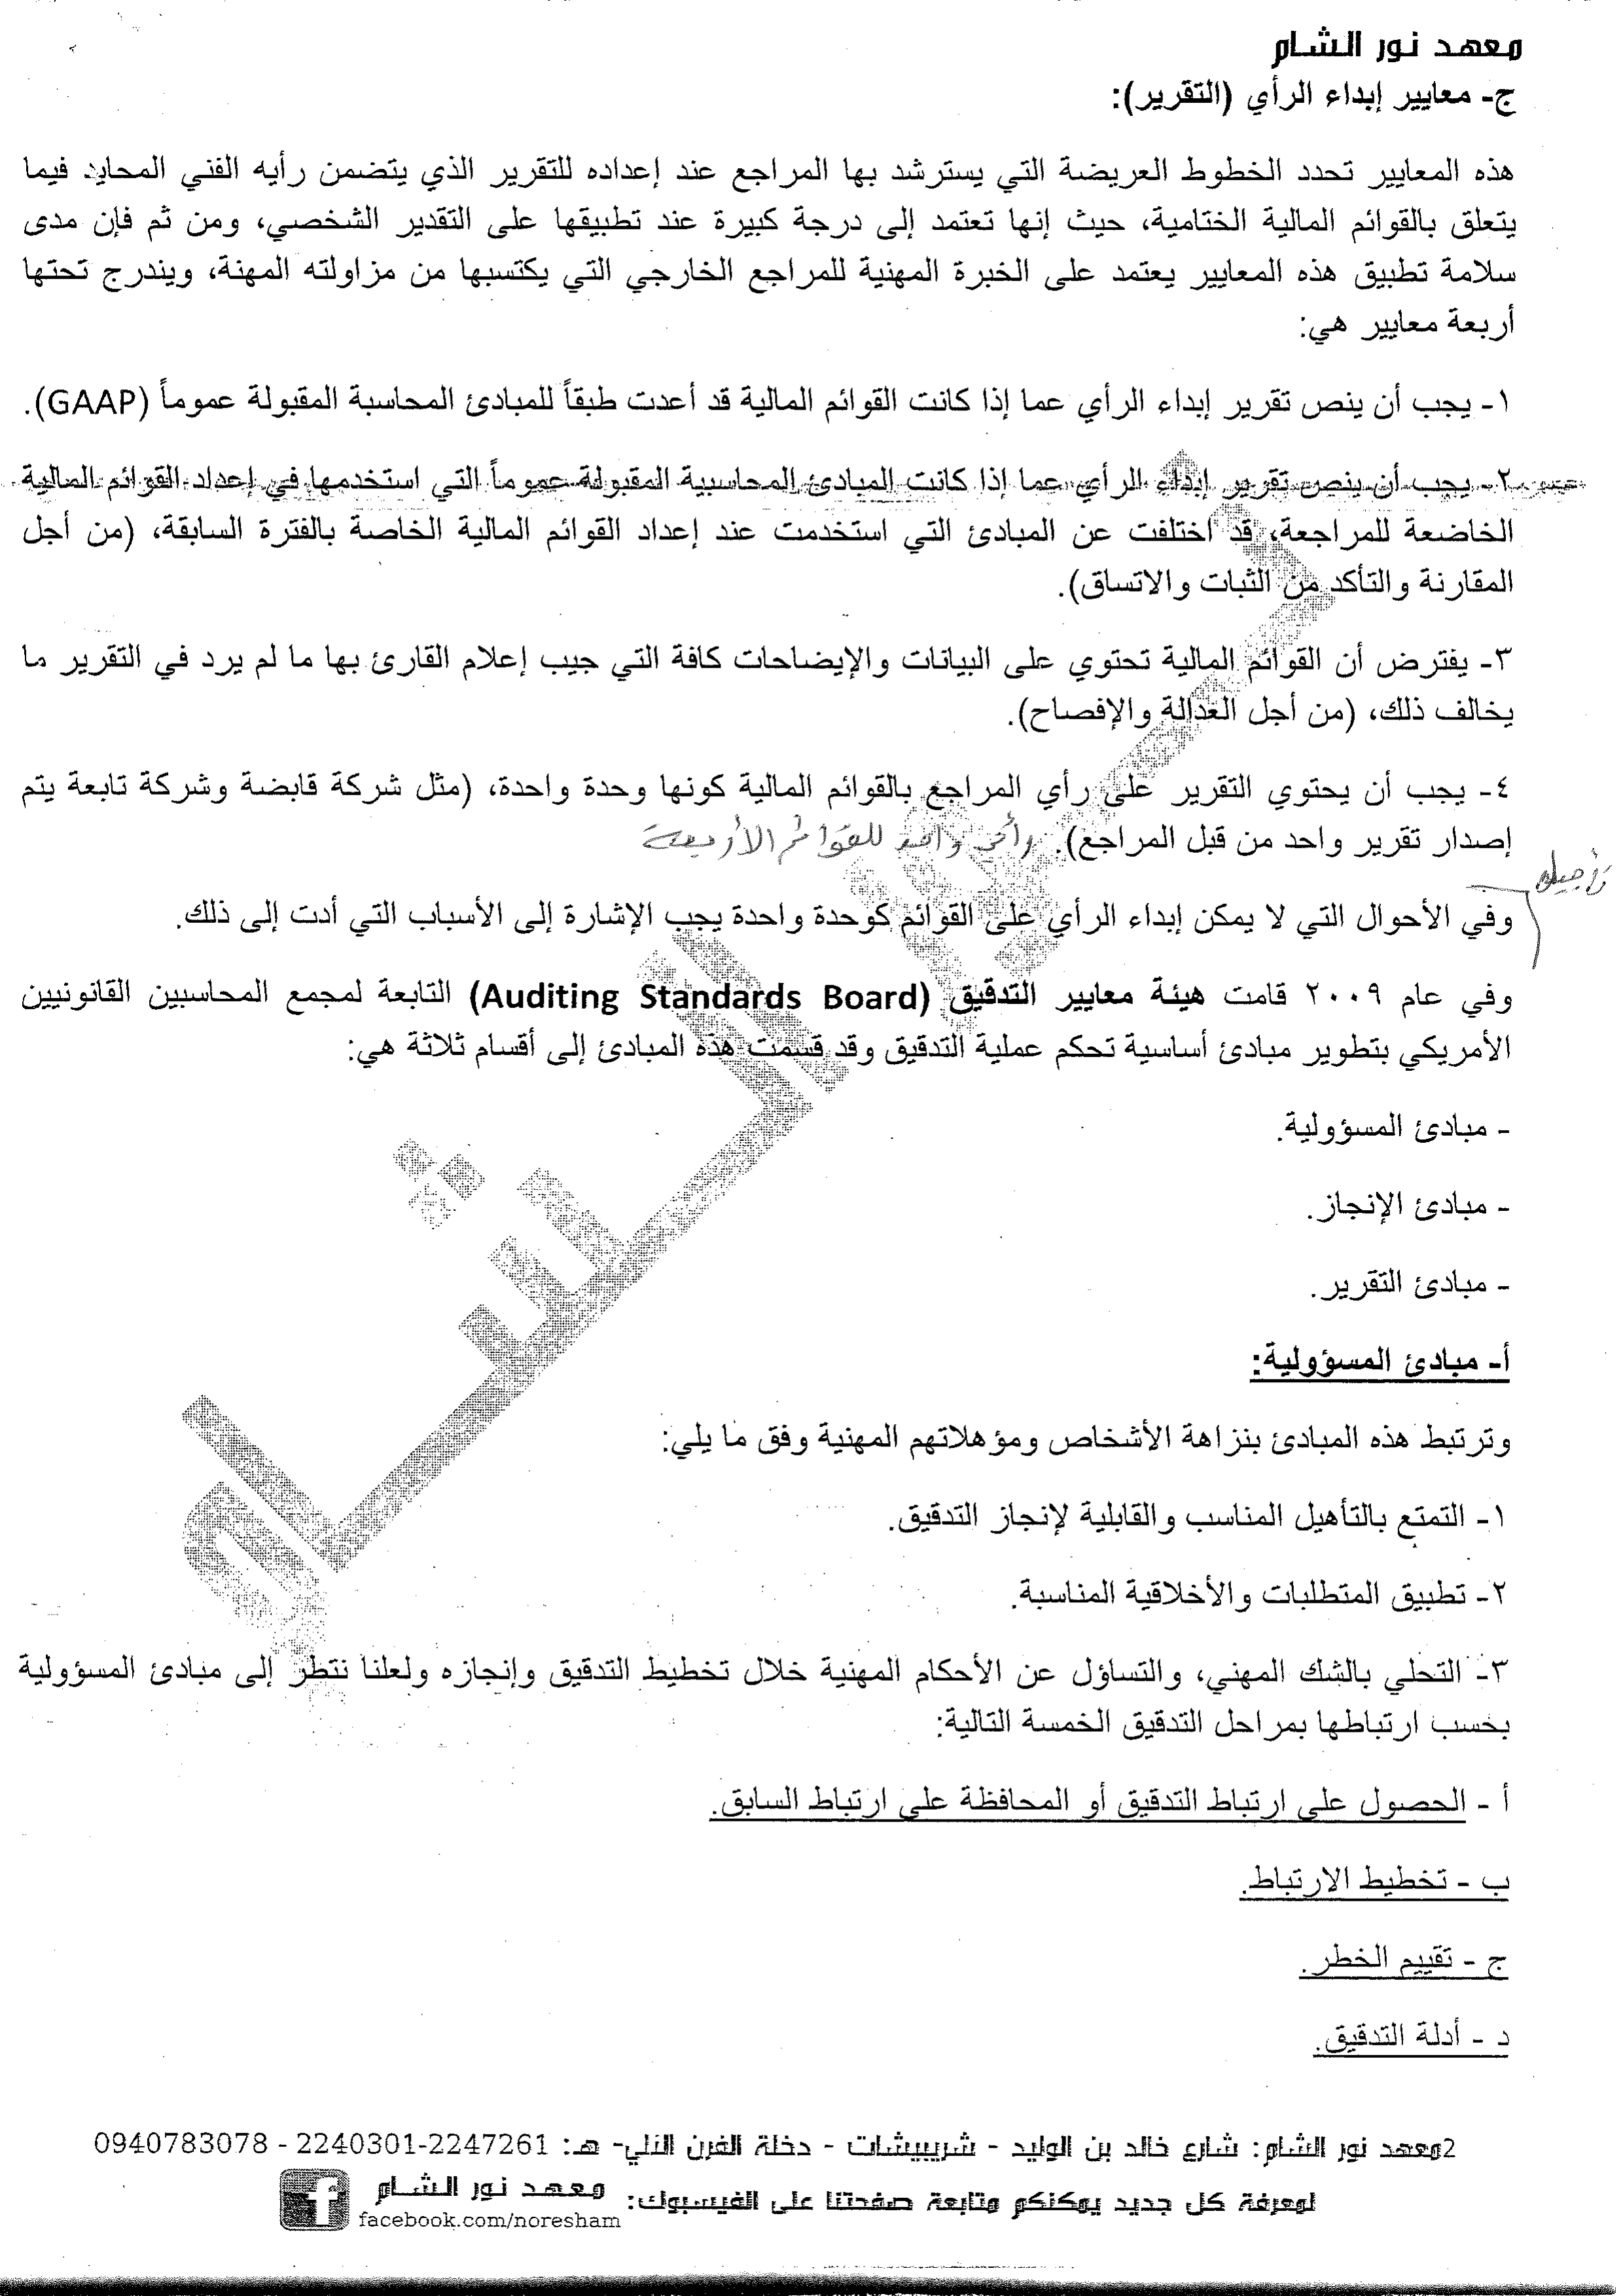 معهد نور الشام
ج- معايير إبداء الرأي (التقرير):
هذه المعايير تحدد الخطوط العريضة التي يسترشد بها المراجع عند إعداده للتقرير الذي يتضمن رأيه الفني المحايد فيما
يتعلق بالقوائم المالية الختامية، حيث إنها تعتمد إلى درجة كبيرة عند تطبيقها على التقدير الشخصي، ومن ثم فإن مدى
سلامة تطبيق هذه المعايير يعتمد على الخبرة المهنية للمراجع الخارجي التي يكتسبها من مزاولته المهنة، ويندرج تحتها
أربعة معايير هي:
١- يجب أن ينص تقرير إبداء الرأي عما إذا كانت القوائم المالية قد أعدت طبقاً للمبادئ المحاسبة المقبولة عموماً (GAAP).
٢- يجب أن ينص تقرير إبداء الرأي عما إذا كانت المبادئ المحاسبية المقبولة عموماً التي استخدمها في إعداد القوائم المالية
الخاضعة للمراجعة، قد اختلفت عن المبادئ التي استخدمت عند إعداد القوائم المالية الخاصة بالفترة السابقة، (من أجل
المقارنة والتأكد من الثبات والاتساق).
٣- يفترض أن القوائم المالية تحتوي على البيانات والإيضاحات كافة التي جيب إعلام القارئ بها ما لم يرد في التقرير ما
يخالف ذلك، (من أجل العدالة والإفصاح).
٤- يجب أن يحتوي التقرير على رأي المراجع بالقوائم المالية كونها وحدة واحدة، (مثل شركة قابضة وشركة تابعة يتم
إصدار تقرير واحد من قبل المراجع). رأي واحد للقوائم الأربعة
وفي الأحوال التي لا يمكن إبداء الرأي على القوائم كوحدة واحدة يجب الإشارة إلى الأسباب التي أدت إلى ذلك.
وفي عام ٢٠٠٩ قامت هيئة معايير التدقيق (Auditing Standards Board) التابعة لمجمع المحاسبين القانونيين
الأمريكي بتطوير مبادئ أساسية تحكم عملية التدقيق وقد قسمت هذه المبادئ إلى أقسام ثلاثة هي:
- مبادئ المسؤولية.
- مبادئ الإنجاز.
- مبادئ التقرير.
أ- مبادئ المسؤولية:
وترتبط هذه المبادئ بنزاهة الأشخاص ومؤهلاتهم المهنية وفق ما يلي:
١- التمتع بالتأهيل المناسب والقابلية لإنجاز التدقيق.
٢- تطبيق المتطلبات والأخلاقية المناسبة.
٣- التحلي بالشك المهني، والتساؤل عن الأحكام المهنية خلال تخطيط التدقيق وإنجازه ولعلنا نتطر إلى مبادئ المسؤولية
بخسب ارتباطها بمراحل التدقيق الخمسة التالية:
أ - الحصول على ارتباط التدقيق أو المحافظة على ارتباط السابق.
ب - تخطيط الارتباط.
ج - تقييم الخطر.
د - أدلة التدقيق.
2معهد نور الشام: شارع خالد بن الوليد - شريبيشات - دخلة الفرن الالي- هـ: 2247261-2240301 - 0940783078
لمعرفة كل جديد يمكنكم متابعة صفحتنا على الفيسبوك: معهد نور الشام
facebook.com/noresham